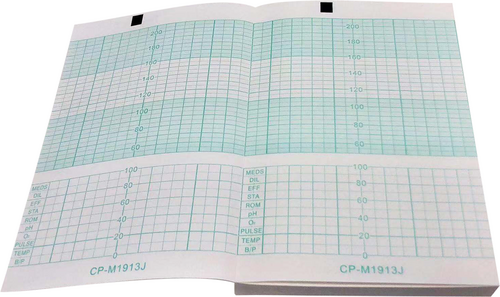 200
180
160
140
120
100
80
60
100
80
60
40
20
0
MEDS
DIL
EFF
STA
ROM
pH
O₂
PULSE
TEMP
B/P
CP-M1913J
200
180
160
140
120
100
80
60
100
80
60
40
20
0
MEDS
DIL
EFF
STA
ROM
pH
O₂
PULSE
TEMP
B/P
CP-M1913J